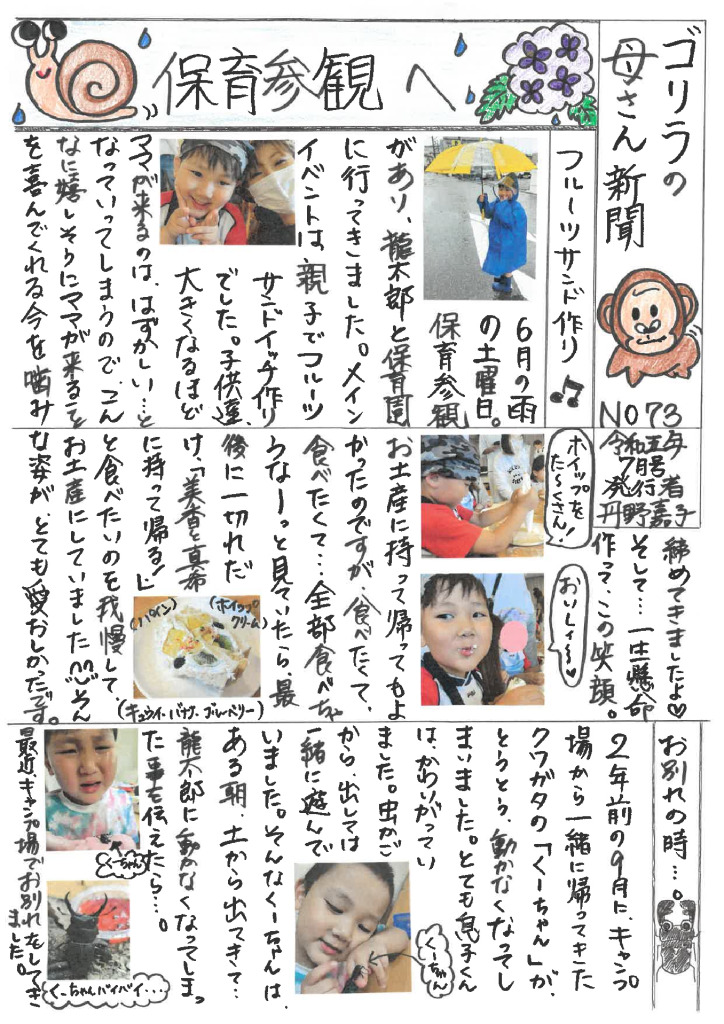 ゴリラの
母さん新聞
NO 73
令和五年
7月号
発行者
丹野嘉子
保育参観へ
フルーツサンド作り
6月の雨
の土曜日。
保育参観
があり、龍太郎と保育園
に行ってきました。メイン
イベントは、親子でフルーツ
サンドイッチ作り
でした。子供達、
大きくなるほど
ママが来るのは、はずかしい…と
なっていってしまうので、こん
なに嬉しそうにママが来ること
を喜んでくれる今を噛み
締めてきましたよ♡
そして…一生懸命
作って、この笑顔。
ホイップを
た〜くさん!
おいしィ〜♡
お土産に持って帰ってもよ
かったのですが、食べたくて、
食べたくて…全部食べちゃ
うな〜っと見ていたら、最
後に一切れだ
け、「美香と真希
に持って帰る!」
と食べたいのを我慢して、
お土産にしていました そん
な姿が、とても愛おしかったです。
(パイン)
(ホイップ
クリーム)
(キュウイ・バナナ・ブルーベリー)
お別れの時…。
2年前の9月に、キャンプ
場から一緒に帰ってきた
クワガタの「くーちゃん」が、
とうとう、動かなくなってし
まいました。とても息子くん
は、かわいがってい
ました。虫かご
から、出しては
一緒に遊んで
いました。そんなくーちゃんは、
ある朝、土から出てきて…
龍太郎に動かなくなってしまっ
た事を伝えたら…。
最近、キャンプ場でお別れをしてき
ました。
くーちゃん
くーちゃん
くーちゃんバイバイ...